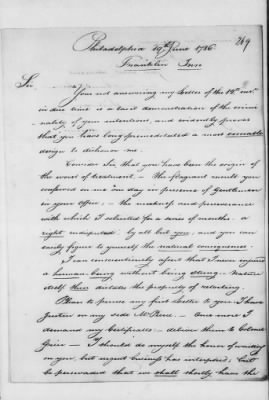 269
Philadelphia 19th June 1786
Franklin Inn
Sir
Your not answering my Letter of the 12th inst.
in due time is a tacit demonstration of the crimi-
nality of your intentions, and evidently proves
that you have long premeditated a most
design to dishonor me.
Consider Sir, that you have been the origin
of the worst of treatment — The flagrant insults you
conferred on me in day in presence of Gentlemen
in your office; — the and perseverance
with which I solicited for a series of months a
right undisputed by all but you, and you can
easily figure to yourself the natural consequences.
I am conscientiously apt that I never injured
a human being without being Stung. Nature
itself thus dictates the property of retorting.
Please to peruse my first Letter to you I have
Justice on my side Mr Pierce. — Once more I
demand my Certificates — deliver them to Colonel
Grier — I should do myself the honor of waiting
on you, but urgent business has interposed, but
be persuaded that we shall shortly have the